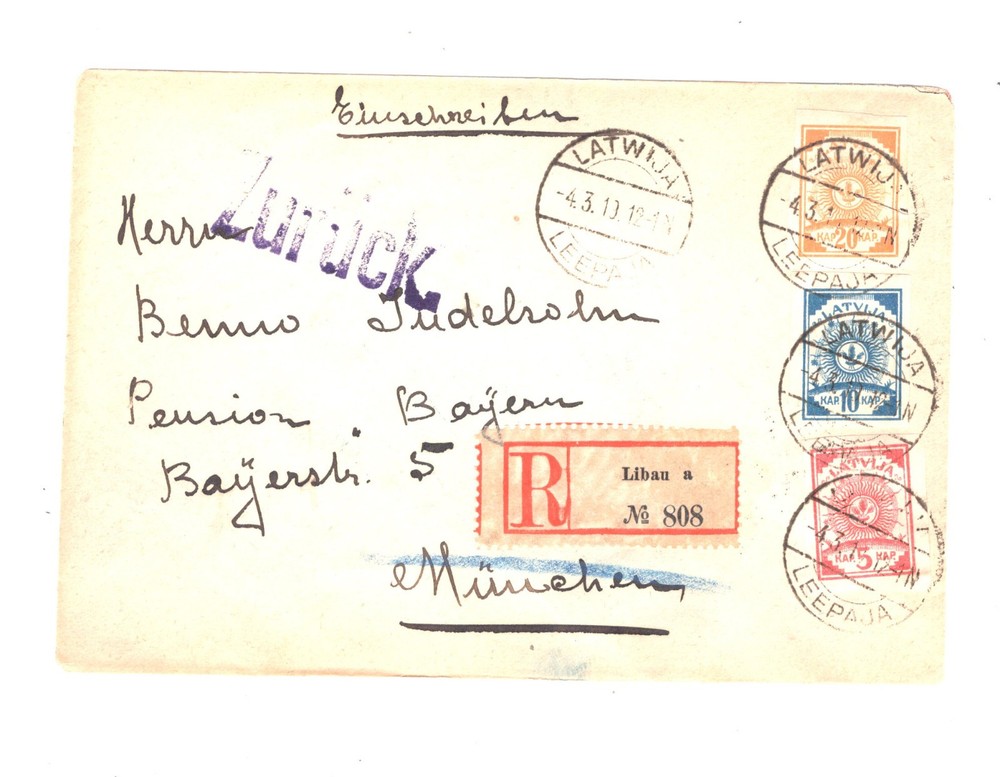 Einschreiben
Zurück
Herrn
Benno Judelsohn
Pension Bayern
Bayerstr. 5
München
R
Libau a
№ 808
LATWIJA
-4.3.19.12-1N
LEEPAJA
LATWIJA
-4.3.1
LEEPAJA
KAP. 20 KAP.
LATVIJA
KAP. 10 KAP.
LATWIJA
LATVIJA
KAP. 5 KAP.
-4.3.1
LEEPAJA